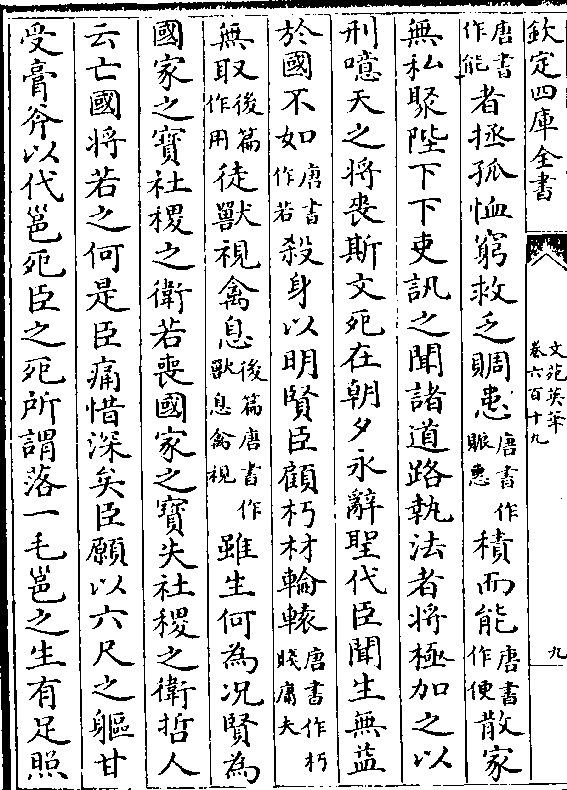 欽定四庫全書
文苑英華
卷六百十九
九
唐書作能者拯孤恤窮救乏賙患唐書作賑惠積而能唐書作便散家
無私聚陛下下吏訊之聞諸道路執法者將極加之以
刑噫天之將喪斯文死在朝夕永辭聖代臣聞生無益
於國不如唐書作若殺身以明賢臣顧朽材輪轅唐書作朽賤庸夫
無取後篇作用徒獸視禽息後篇唐書作獸息禽視雖生何為况賢為
國家之寳社稷之衛若喪國家之寳失社稷之衛哲人
云亡國將若之何是臣痛惜深矣臣願以六尺之軀甘
受膏斧以代邕死臣之死所謂落一毛邕之生有足照